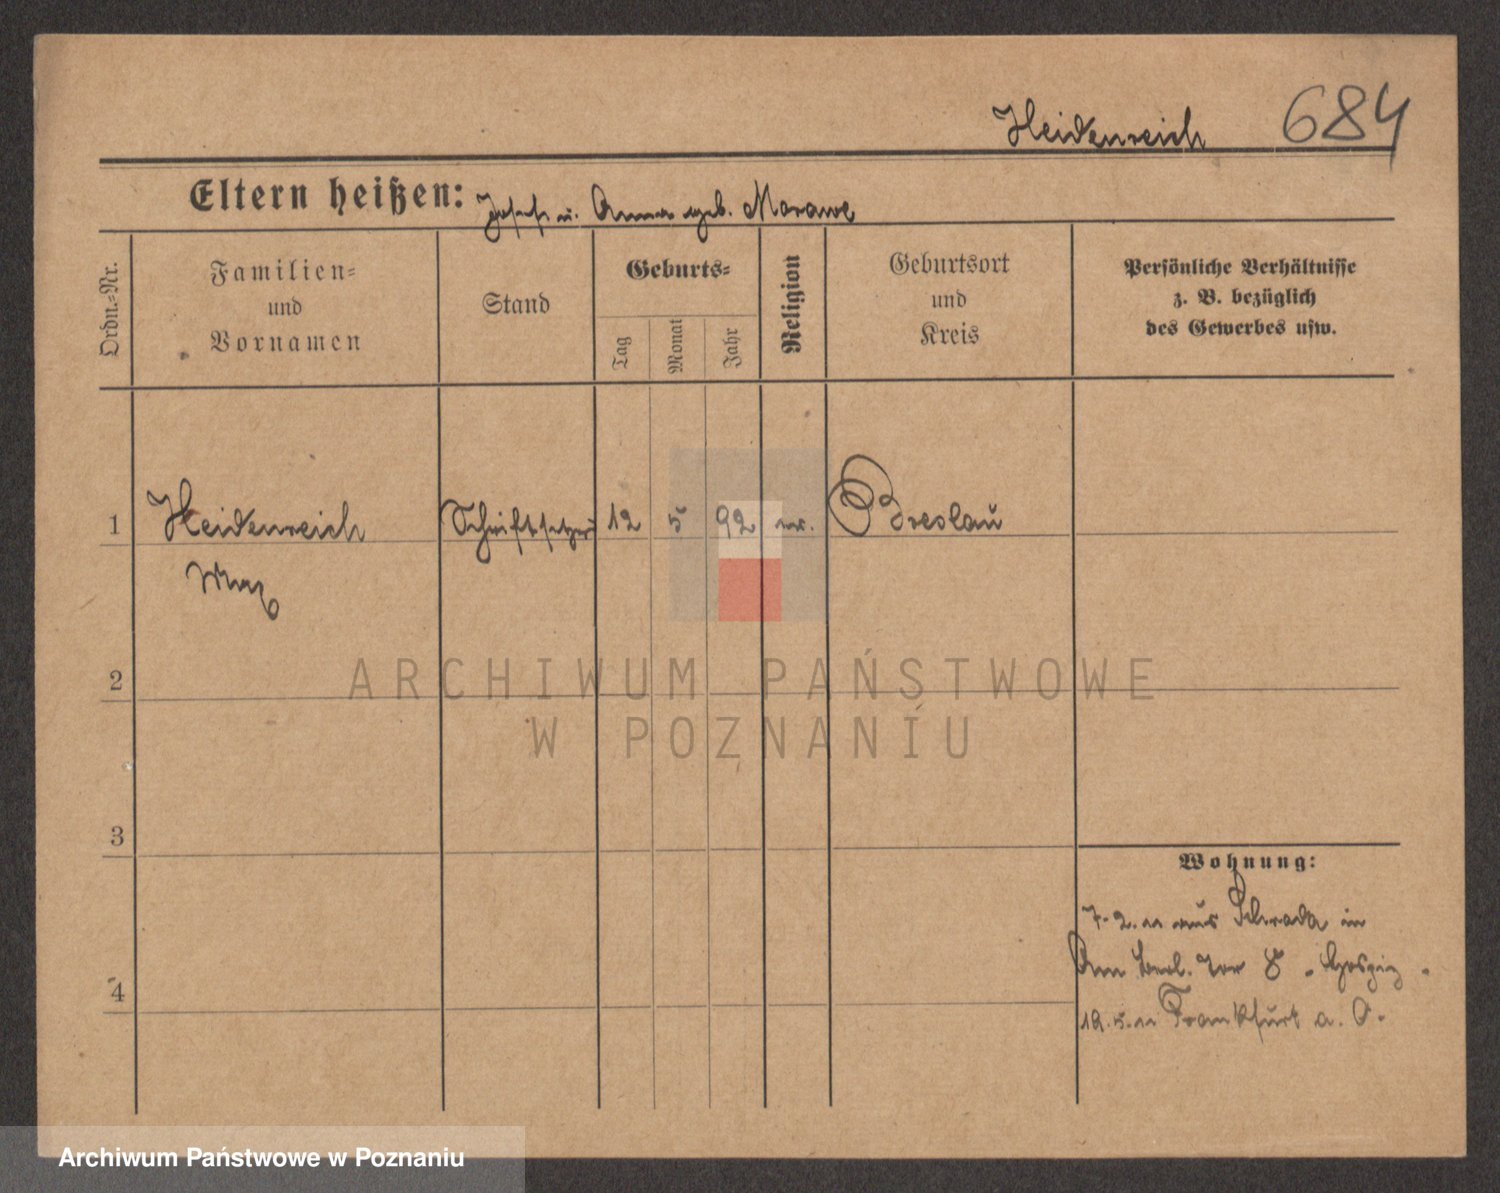 Heidenreich 684
Eltern heißen: Josef u. Anna geb. Morawe
Ordn.=Nr.
Familien=
und
Vornamen
Stand
Geburts=
Tag
Monat
Jahr
Religion
Geburtsort
und
Kreis
Persönliche Verhältnisse
z. B. bezüglich
des Gewerbes usw.
1 Heidenreich Schriftsetzer 12 5 92 Breslau
Max
2
3
4
Wohnung:
7. 2. 11 aus Schroda in
Am Berl. Tor 8. Hospiz.
12. 5. 11 Frankfurt a. O.
ARCHIWUM PAŃSTWOWE
W POZNANIU
Archiwum Państwowe w Poznaniu